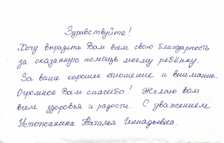 Здравствуйте!
Хочу выразить Вам всем свою благодарность
за оказанную помощь моему ребёнку.
За ваше хорошее отношение и внимание.
Огромное Вам спасибо! Желаю вам
всем здоровья и радости. С уважением
Наталья Геннадьевна.